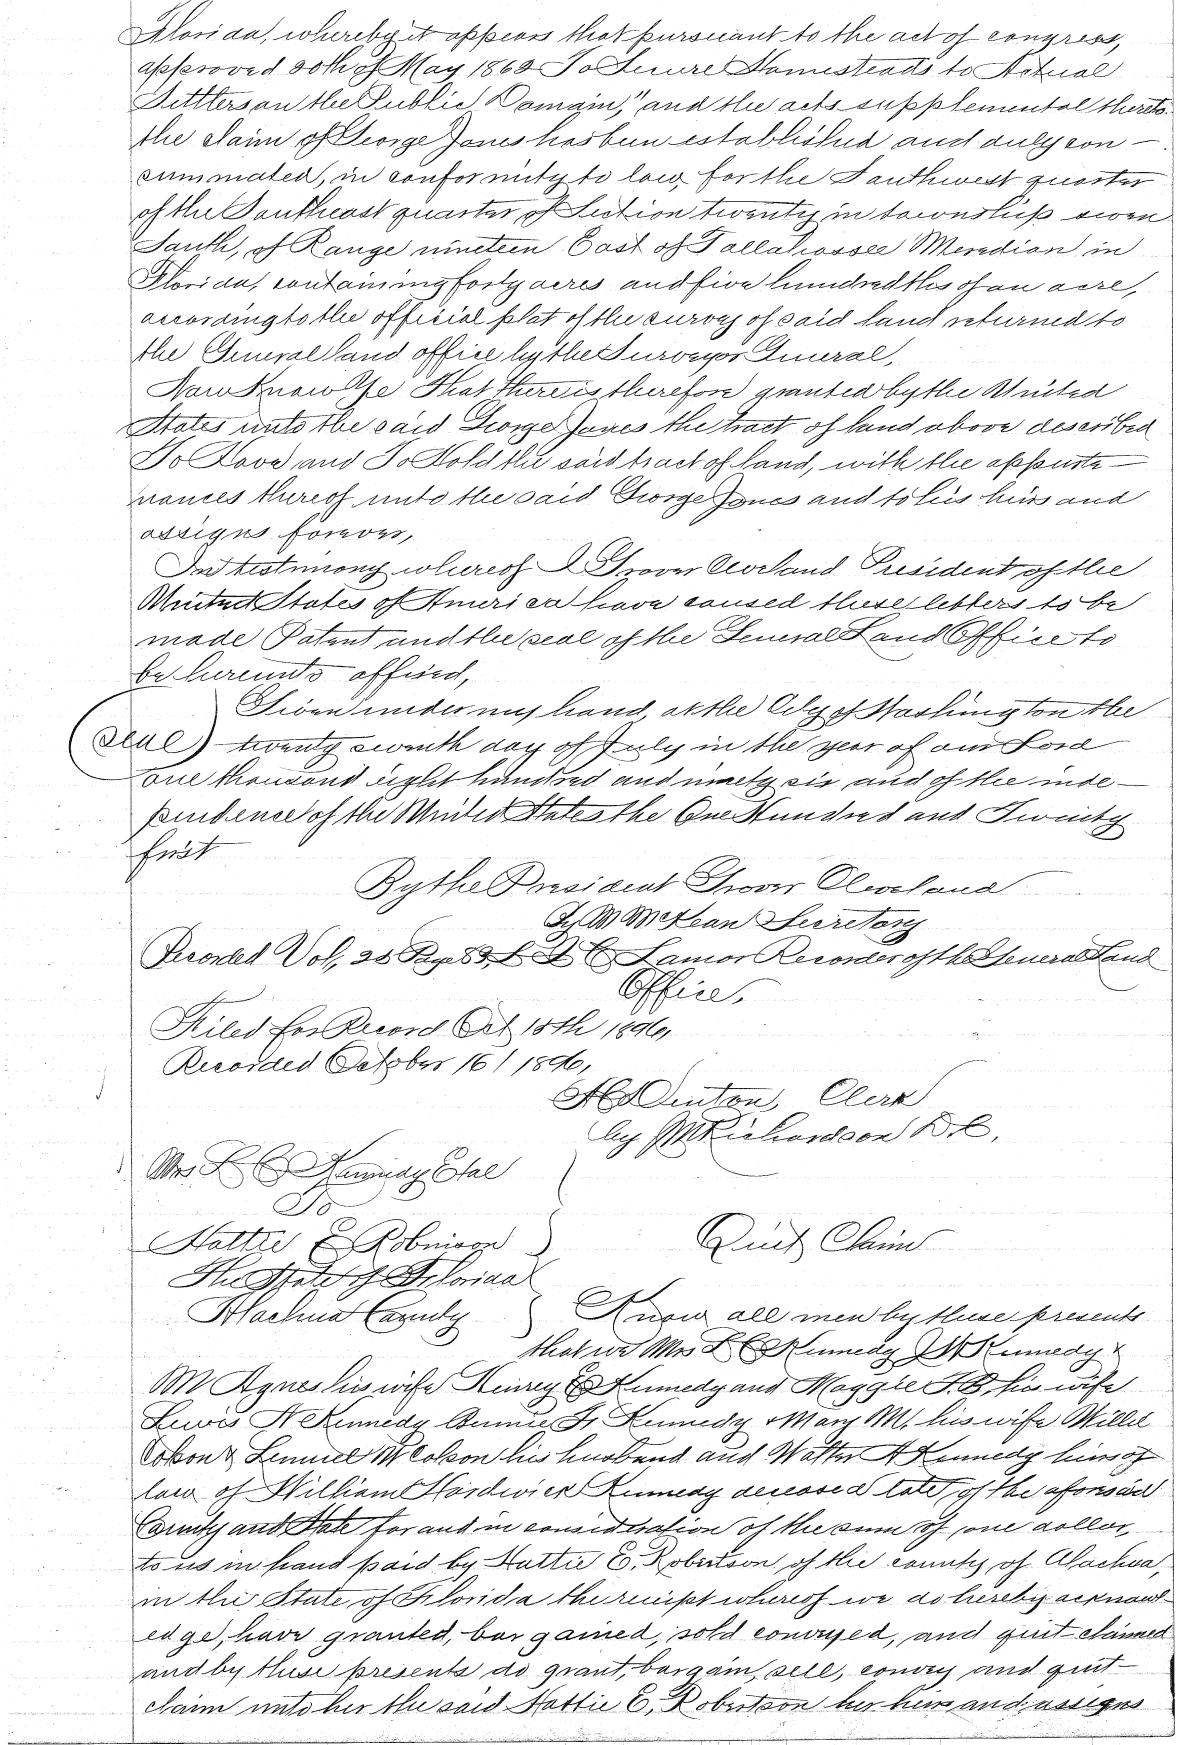 Florida, whereby it appears that pursuant to the act of congress,
approved 20th of May 1862 To Secure Homesteads to Actual
Settlers on the Public Domain," and the acts supplemental thereto.
the claim of George Jones has been established and duly con-
summated, in conformity to law, for the Southwest quarter
of the Southeast quarter of Section twenty in township seven
South, of Range nineteen East of Tallahassee Meredian in
Florida, containing forty acres and five hundredths of an acre,
according to the official plat of the survey of said land returned to
the General land office by the Surveyor General,
Now Know Ye That there is therefore granted by the United
States unto the said George Jones the tract of land above described
To Have and To Hold the said tract of land, with the apperte-
nances thereof unto the said George Jones and to his heirs and
assigns forever,
In testimony whereof I Grover Cleveland President of the
United States of America have caused these letters to be
made Patent and the seal of the General Land Office to
be hereunto affixed,
Given under my hand, at the City of Washington the
(seal) twenty seventh day of July in the year of our Lord
one thousand eight hundred and ninety six and of the inde-
pendence of the United States the One Hundred and Twenty
first
By the President Grover Cleveland
By M McKean Secretary
Recorded Vol, 25 Page L Q C Lamar Recorder of the General Land
Office,
Filed for Record Oct 15th 1896,
Recorded October 16/1896,
Denton, Clerk
by JM Richardson D.C.
Mrs L C Kennedy Etal
To
Hattie E Robinson
Quit Claim
The State of Florida
Alachua County
Know all men by these presents
that we Mrs L C Kennedy J W Kennedy &
M Agnes his wife Henrey E Kennedy and Maggie F. B. his wife
Lewis N Kennedy Bennie F Kennedy & Mary M. his wife Willie
Colson & Lemuel W Colson his husband and Walter A Kennedy heirs of
law of William Hardwick Kennedy deceased late of the aforesaid
County and State for and in consideration of the sum of one dollar,
to us in hand paid by Hattie E. Robertson of the county of Alachua,
in the State of Florida the receipt whereof we do hereby acknowl-
edge, have granted, bargained, sold conveyed, and quit-claimed
and by these presents do grant, bargain, sell, convey and quit-
claim unto her the said Hattie E. Robertson her heirs and assigns